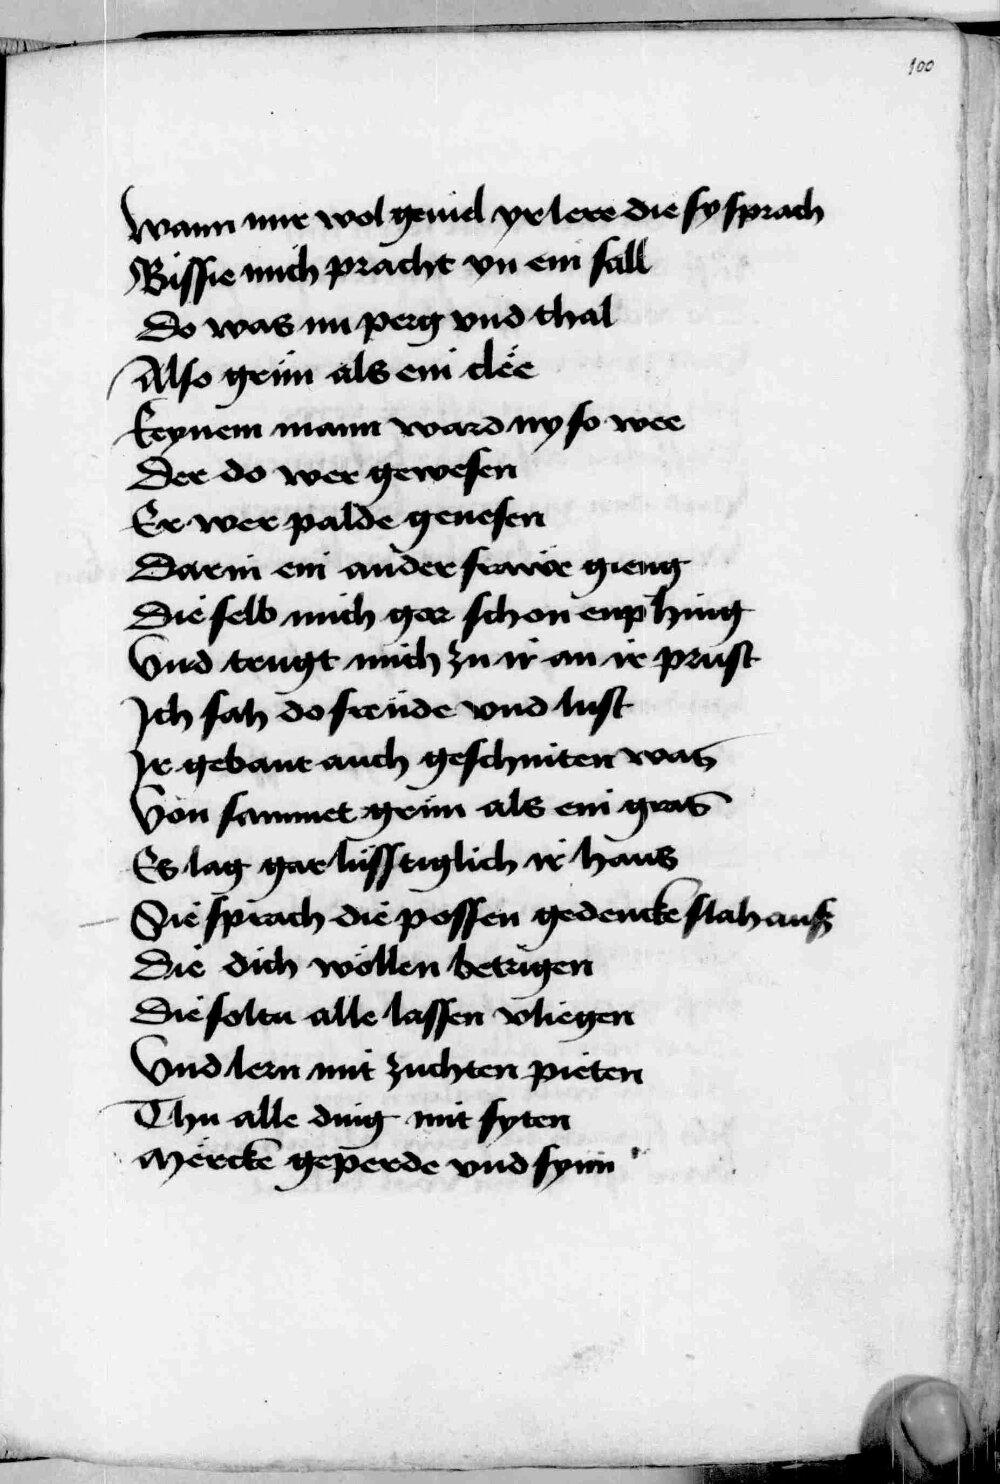 100
Wann mir wol geuiel yr lere die sy sprach
Bis sie mich pracht yn ein sall
Do was im perg vnd thal
Also grün als ein clee
Keynem mann ward ny so wee
Der do wer gewesen
Er wer palde genesen
Darin ein ander frawe gieng
Die selb mich gar schon enphing
Vnd trugt mich zu ir an ir prust
Ich sah do freude vnd lust
Ir gebant auch geschniten was
Von sammet grün als ein gras
Es lag gar lüsstiglich ir haus
Sie sprach die possen gedencke slah auß
Die dich wöllen betrigen
Die soltu alle lassen vliegen
Vnd lern mit zuchten pieten
Thu alle ding mit syten
Mercke geperde vnd synn